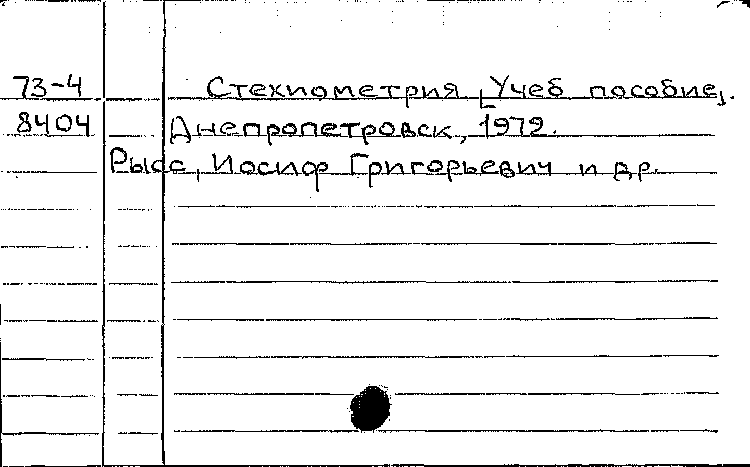 73-4 Стехиометрия [Учеб пособие].
8404 Днепропетровск, 1972.
Рысс, Иосиф Григорьевич и др.